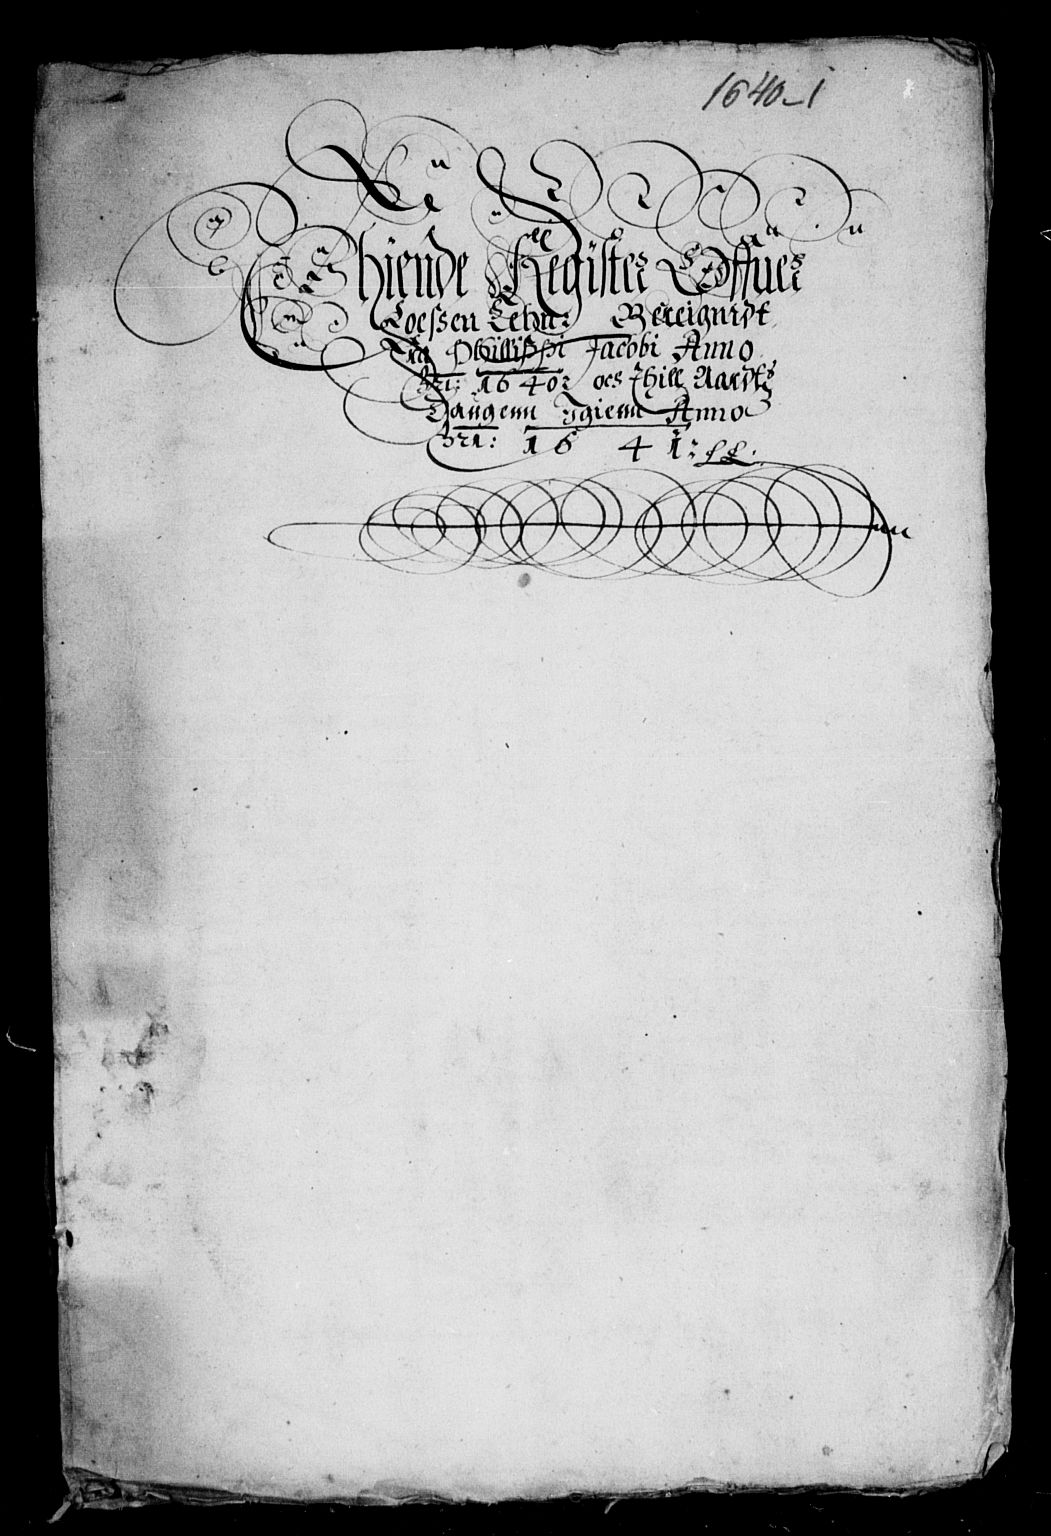 1640-1
Thiende Register Offuer
Loessen Lehn: Bereignidt
Fra Phillippi Jacobi Anno
1640: ocs Thill Aards
Gangenn Igienn Anno
1641: